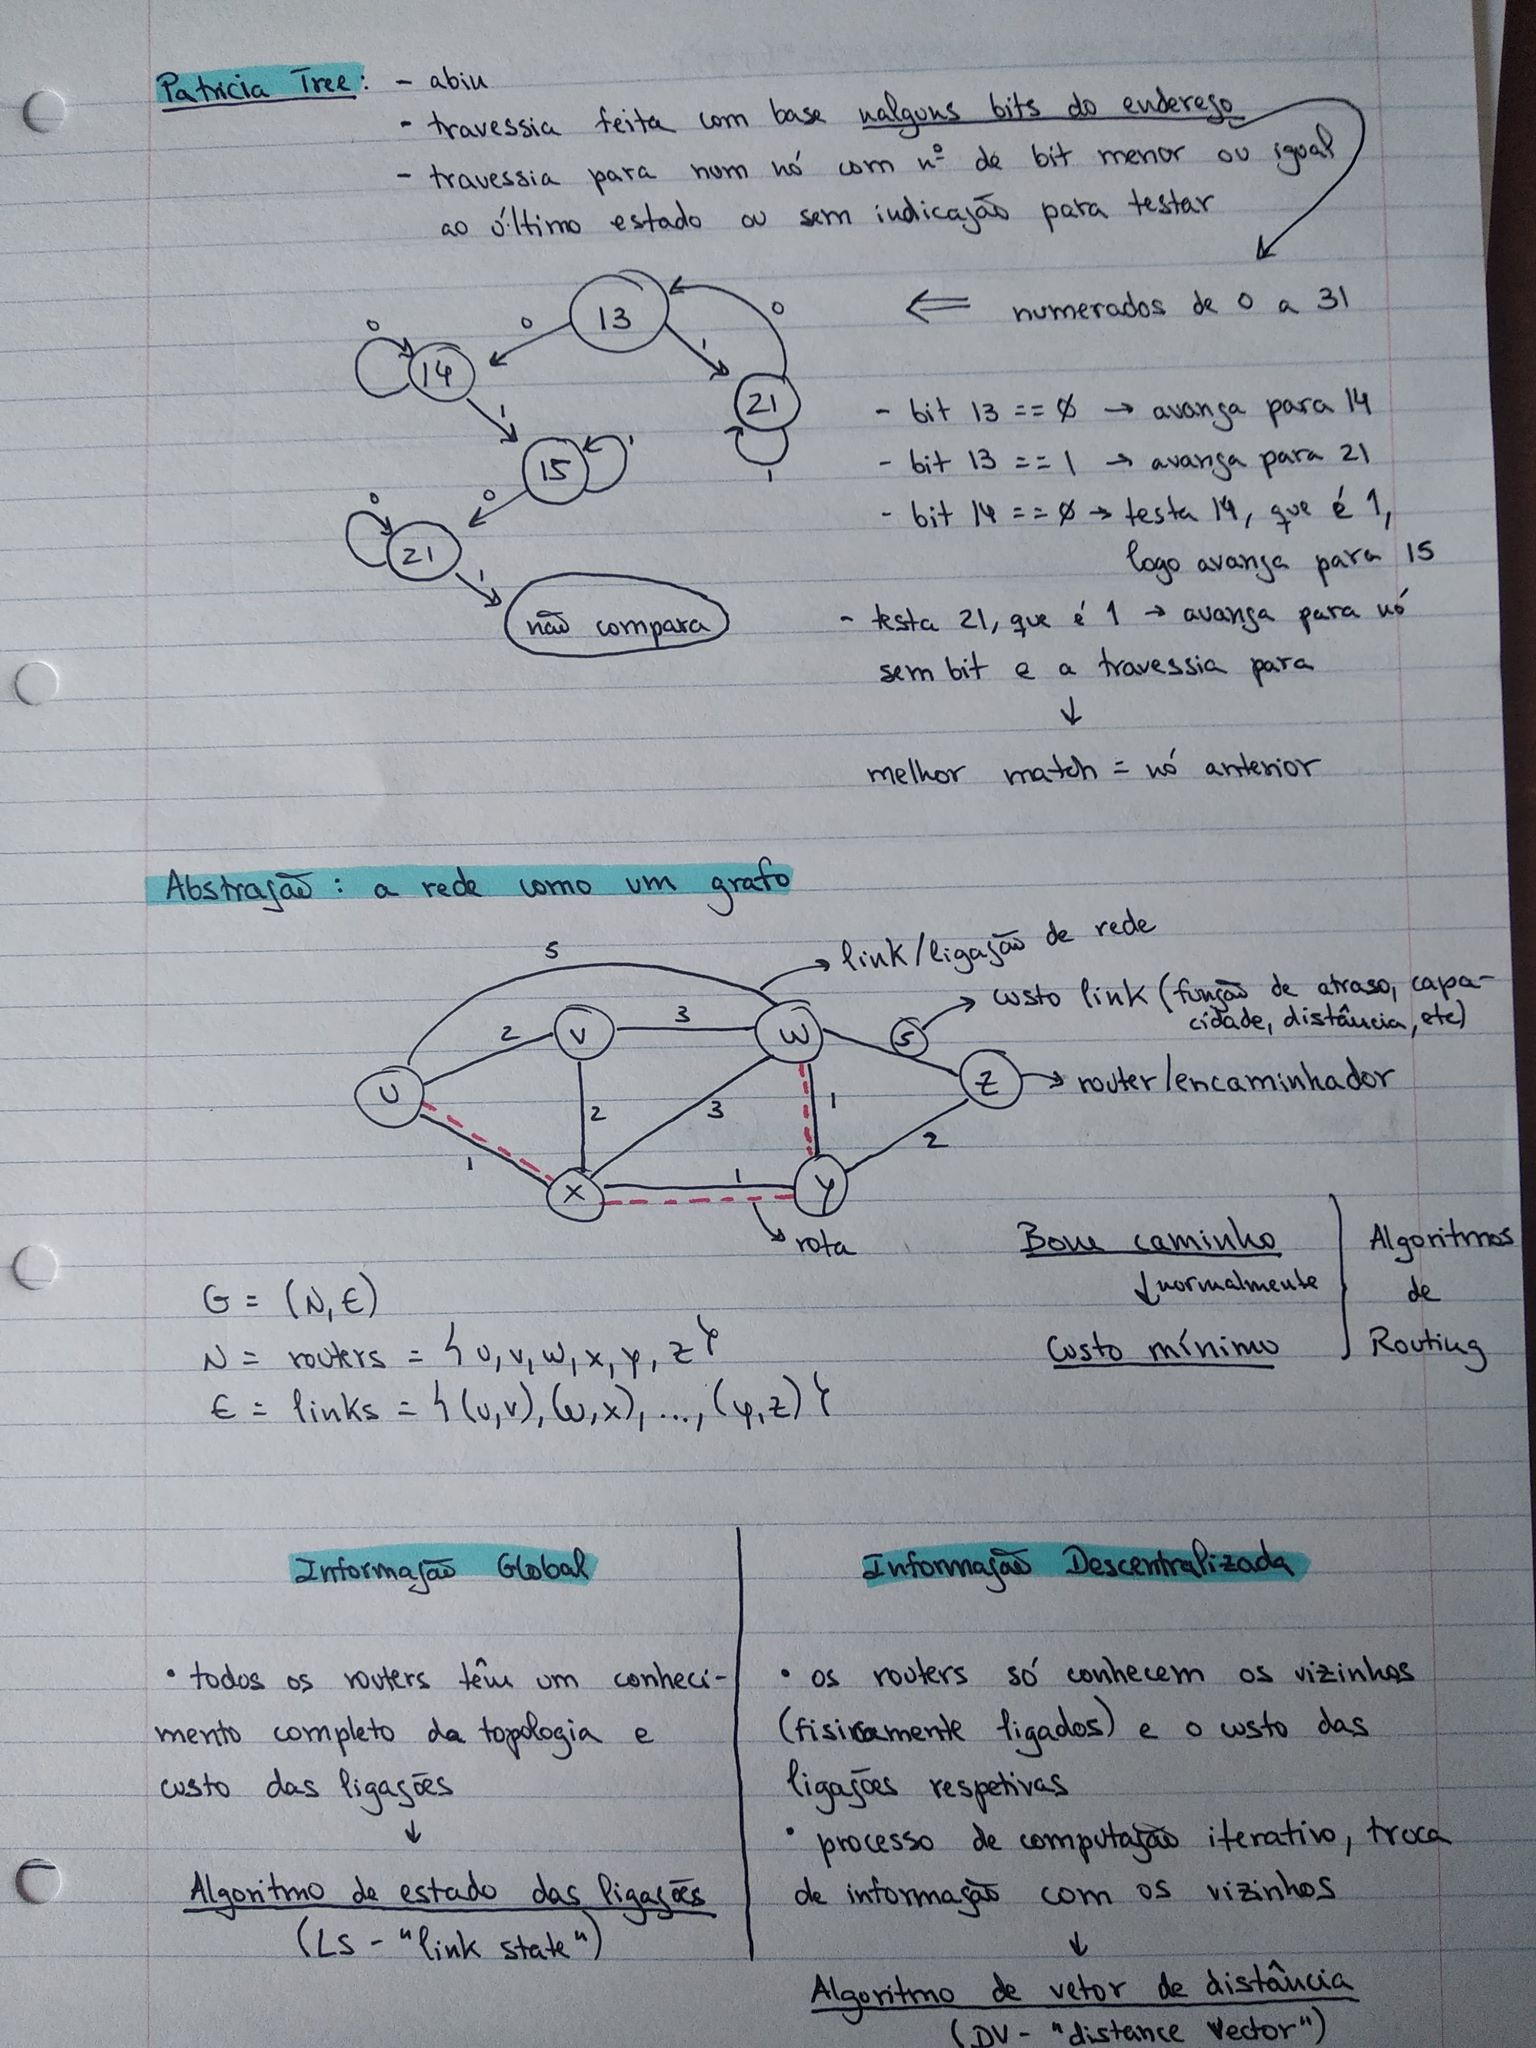 Patricia Tree: - abin
- travessia feita com base nalguns bits do endereço
- travessia para num nó com nº de bit menor ou igual
ao último estado ou sem indicação para testar
numerados de 0 a 31
13
0
1
0
14
0
1
21
1
15
1
0
21
0
1
não compara
- bit 13 == 0 → avança para 14
- bit 13 == 1 → avança para 21
- bit 14 == 0 → testa 14, que é 1,
logo avança para 15
- testa 21, que é 1 → avança para nó
sem bit e a travessia para
↓
melhor match = nó anterior
Abstração: a rede como um grafo
5
link/ligação de rede
custo link (função de atraso, capa-
cidade, distância, etc)
2
V
3
W
5
Z
router/encaminhador
U
2
3
1
2
1
X
1
Y
rota
Bom caminho
↓ normalmente
Custo mínimo
Algoritmos
de
Routing
G = (N, E)
N = routers = {u, v, w, x, y, z}
E = links = {(u,v), (w,x), ..., (y,z)}
Informação Global
• todos os routers têm um conheci-
mento completo da topologia e
custo das ligações
↓
Algoritmo de estado das ligações
(LS - "link state")
Informação Descentralizada
• os routers só conhecem os vizinhos
(fisicamente ligados) e o custo das
ligações respetivas
• processo de computação iterativo, troca
de informação com os vizinhos
↓
Algoritmo de vetor de distância
(DV - "distance vector")